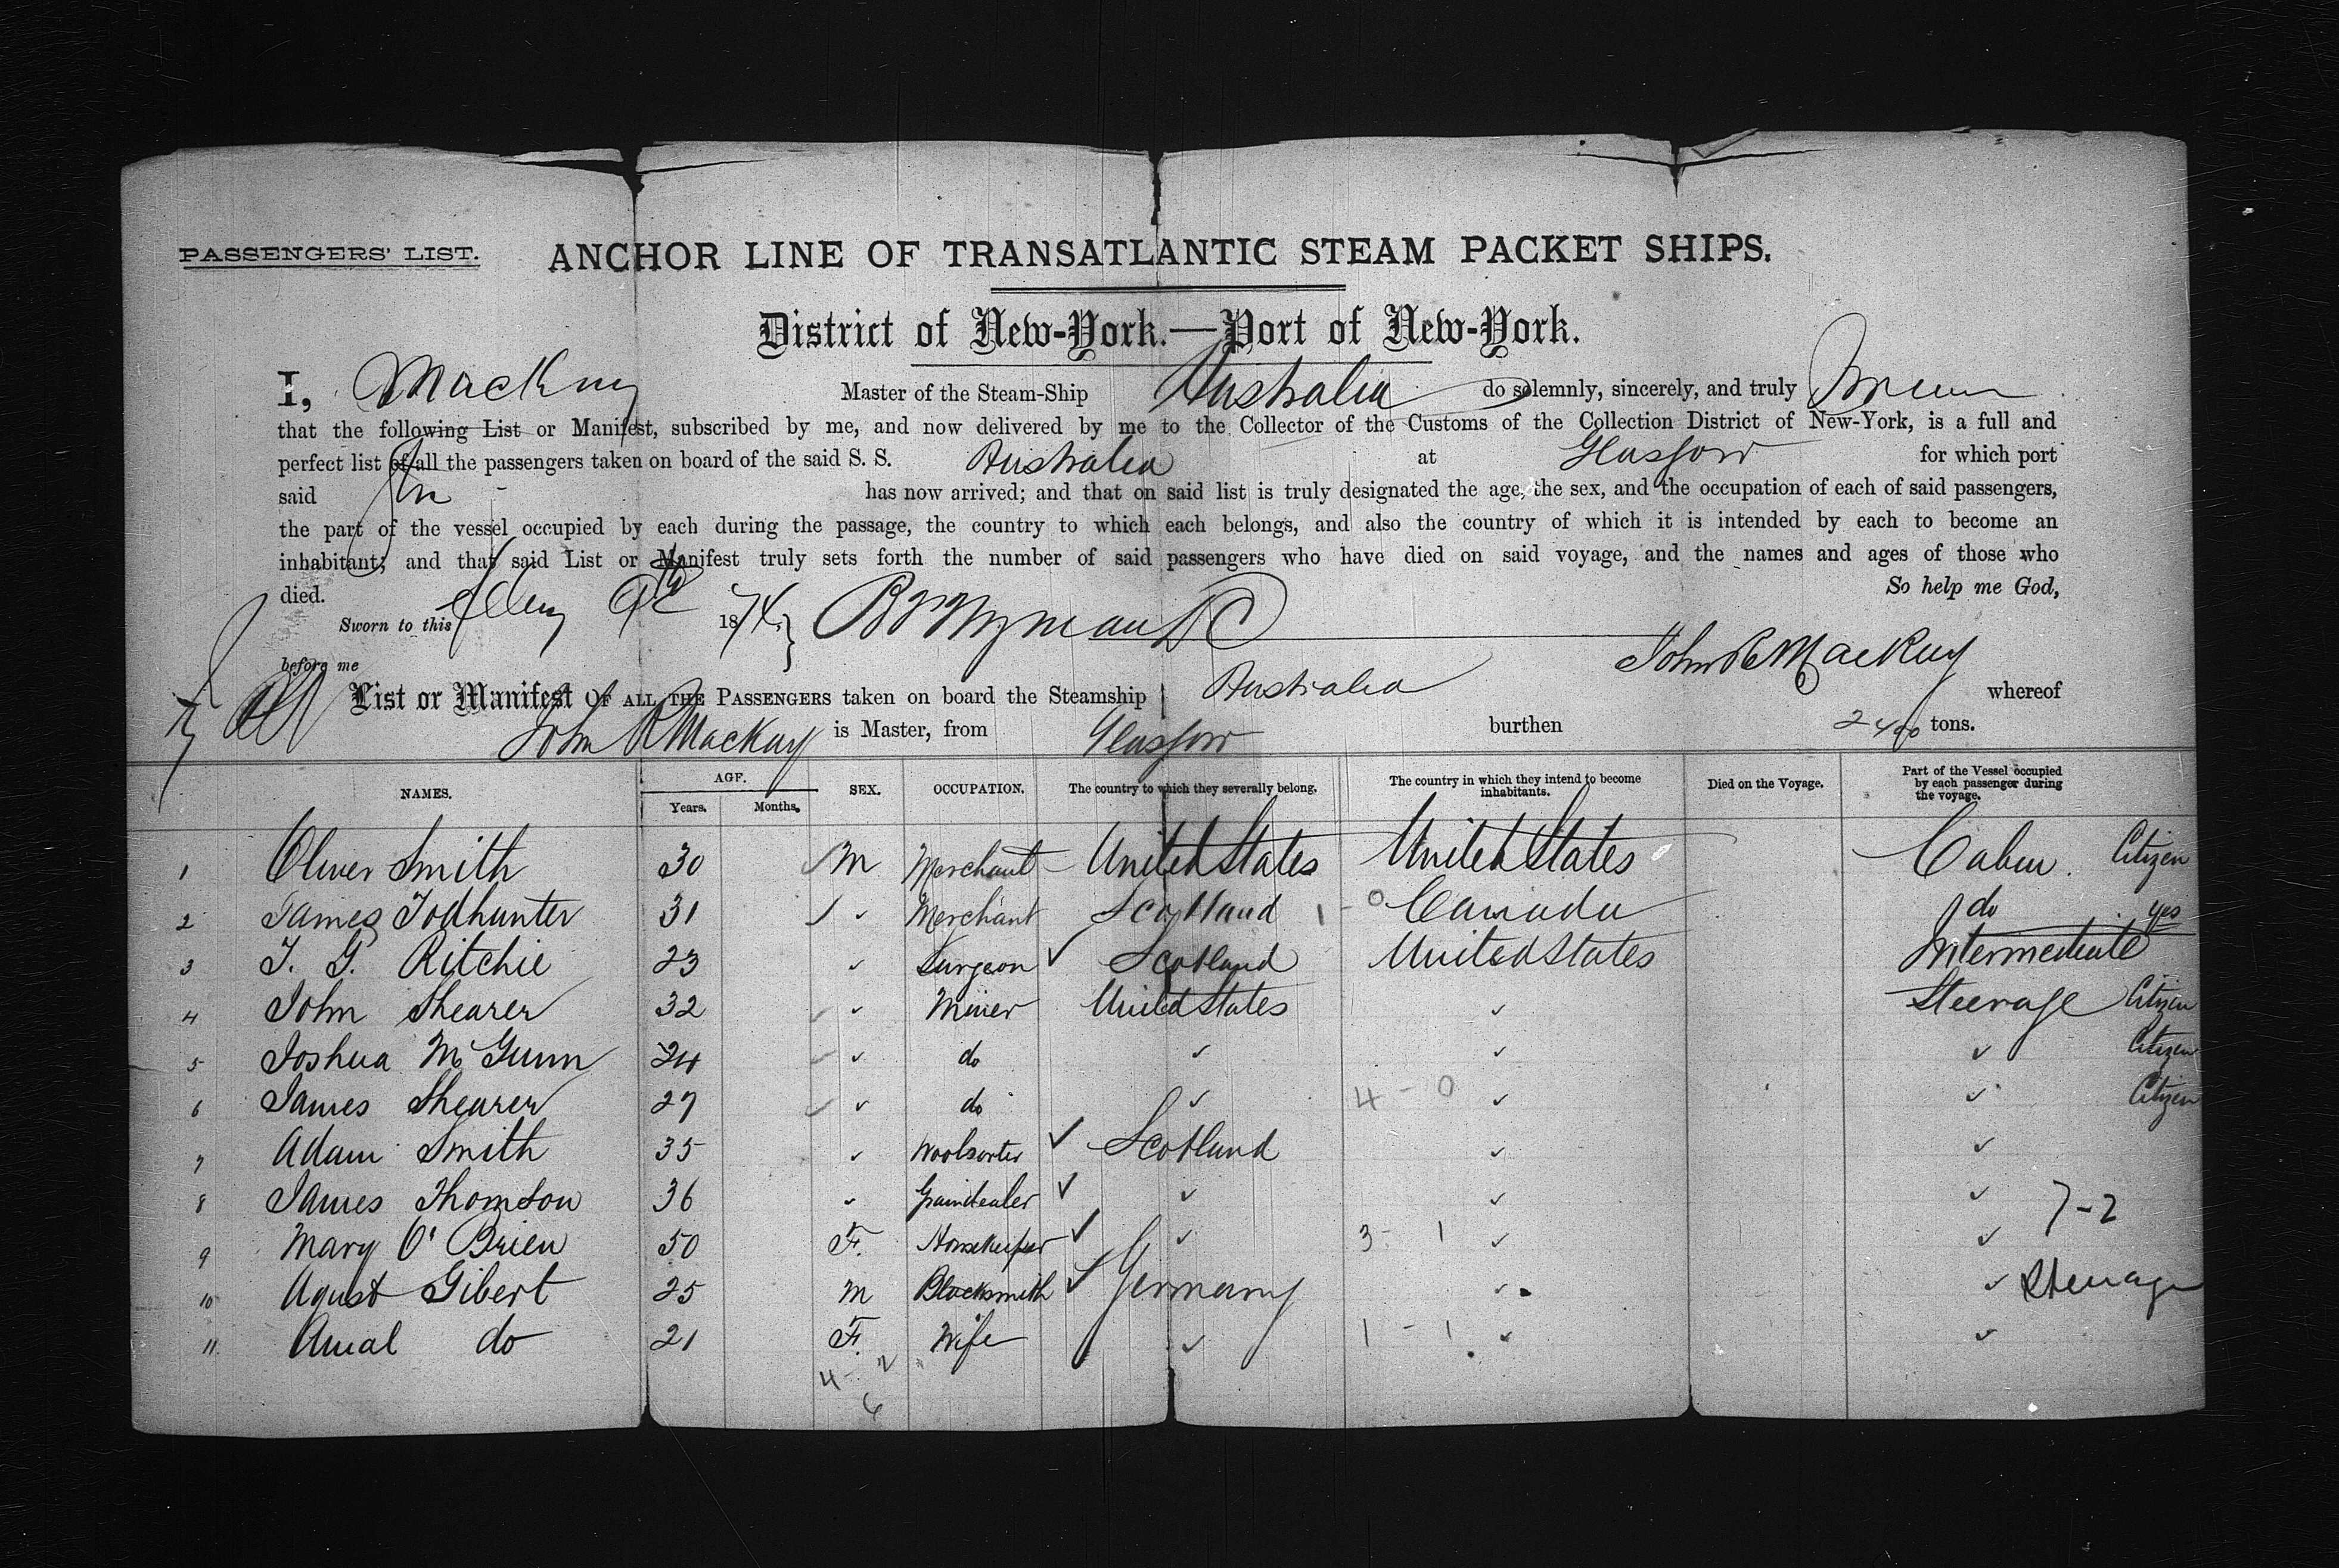 PASSENGERS' LIST. ANCHOR LINE OF TRANSATLANTIC STEAM PACKET SHIPS.
District of New-York.—Port of New-York.
I, Mackay Master of the Steam-Ship Australia do solemnly, sincerely, and truly
that the following List or Manifest, subscribed by me, and now delivered by me to the Collector of the Customs of the Collection District of New-York, is a full and
perfect list of all the passengers taken on board of the said S. S. Australia at Glasgow for which port
said has now arrived; and that on said list is truly designated the age, the sex, and the occupation of each of said passengers,
the part of the vessel occupied by each during the passage, the country to which each belongs, and also the country of which it is intended by each to become an
inhabitant; and that said List or Manifest truly sets forth the number of said passengers who have died on said voyage, and the names and ages of those who
died. So help me God,
Sworn to this 9th 1874.
before me John R Mackay
List or Manifest OF ALL THE PASSENGERS taken on board the Steamship Australia whereof
John R Mackay is Master, from Glasgow burthen 2400 tons.
NAMES. AGE. Years. Months. SEX. OCCUPATION. The country to which they severally belong. The country in which they intend to become inhabitants. Died on the Voyage. Part of the Vessel occupied by each passenger during the voyage.
1 Oliver Smith 30 M Merchant United States United States Cabin. Citizen
2 James Todhunter 31 ✓ Merchant Scotland 1 - 0 Canada do yes
3 J. G. Ritchie 23 ✓ Surgeon ✓ Scotland United States Intermediate
4 John Shearer 32 ✓ Miner United States ✓ Steerage Citizen
5 Joshua McGunn 24 ✓ do ✓ ✓ ✓ Citizen
6 James Shearer 27 ✓ do ✓ 4 - 0 ✓ ✓ Citizen
7 Adam Smith 35 ✓ Woolsorter ✓ Scotland ✓ ✓
8 James Thomson 36 ✓ Graindealer ✓ ✓ ✓ ✓ 7-2
9 Mary O'Brien 50 F. Housekeeper ✓ ✓ 3 - 1 ✓ ✓
10 Agust Gibert 25 M Blacksmith ✓ Germany ✓ ✓ Steerage
11 Amal do 21 F. Wife ✓ 1 - 1 ✓ ✓
4 - 2
6